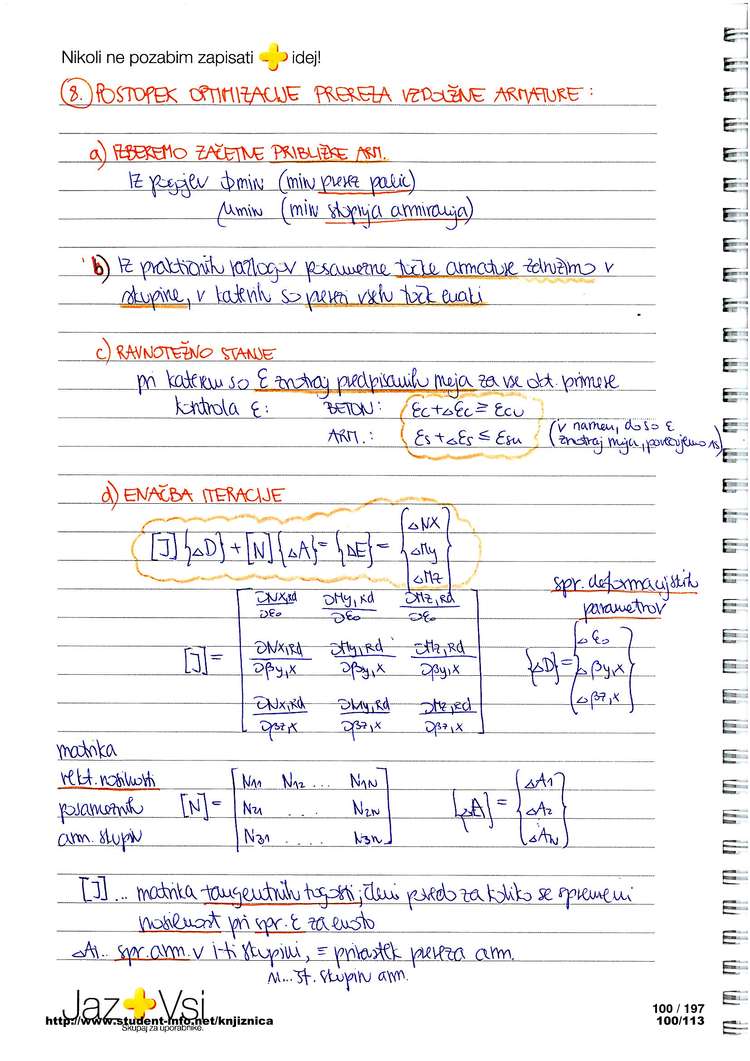 Nikoli ne pozabim zapisati + idej!
8. POSTOPEK OPTIMIZACIJE PREREZA VZDOLŽNE ARMATURE:
a) IZBEREMO ZAČETNE PRIBLIŽKE ARM.
Iz pogojev ϕmin (min prerez palic)
μmin (min stopnja armiranja)
b) Iz praktičnih razlogov posamezne točke armature združimo v
skupine, v katerih so prerezi vseh točk enaki
c) RAVNOTEŽNO STANJE
pri katerem so ε znotraj predpisanih meja za vse obt. primere
kontrola ε: BETON: εc+Δεc ≥ εcu
ARM.: εs+Δεs ≤ εsu (v namenu, da so ε znotraj meja, povečujemo As)
d) ENAČBA ITERACIJE
[J]{ΔD}+[N]{ΔA}={ΔE}={ΔNx ΔMy ΔMz}
spr. deformacijskih
parametrov
[J]= [∂Nx,Rd/∂ε0 ∂My,Rd/∂ε0 ∂Mz,Rd/∂ε0
∂Nx,Rd/∂βy,x ∂My,Rd/∂βy,x ∂Mz,Rd/∂βy,x
∂Nx,Rd/∂βz,x ∂My,Rd/∂βz,x ∂Mz,Rd/∂βz,x]
{ΔD}={Δε0 Δβy,x Δβz,x}
matrika
rekt. nosilnosti
posameznih
arm. skupin
[N]= [N11 N12 ... N1N
N21 . . . N2N
N31 . . . N3N]
{ΔA}={ΔA1 ΔA2 ΔAN}
[J]... matrika tangentnih togosti; členi povedo za koliko se spremeni
nosilnost pri spr. ε za enoto
ΔAi.. spr. arm. v i-ti skupini, = prirastek prereza arm.
N... št. skupin arm.
Jaz+Vsi
Skupaj za uporabnike.
http://www.student-info.net/knjiznica
100 / 197
100/113